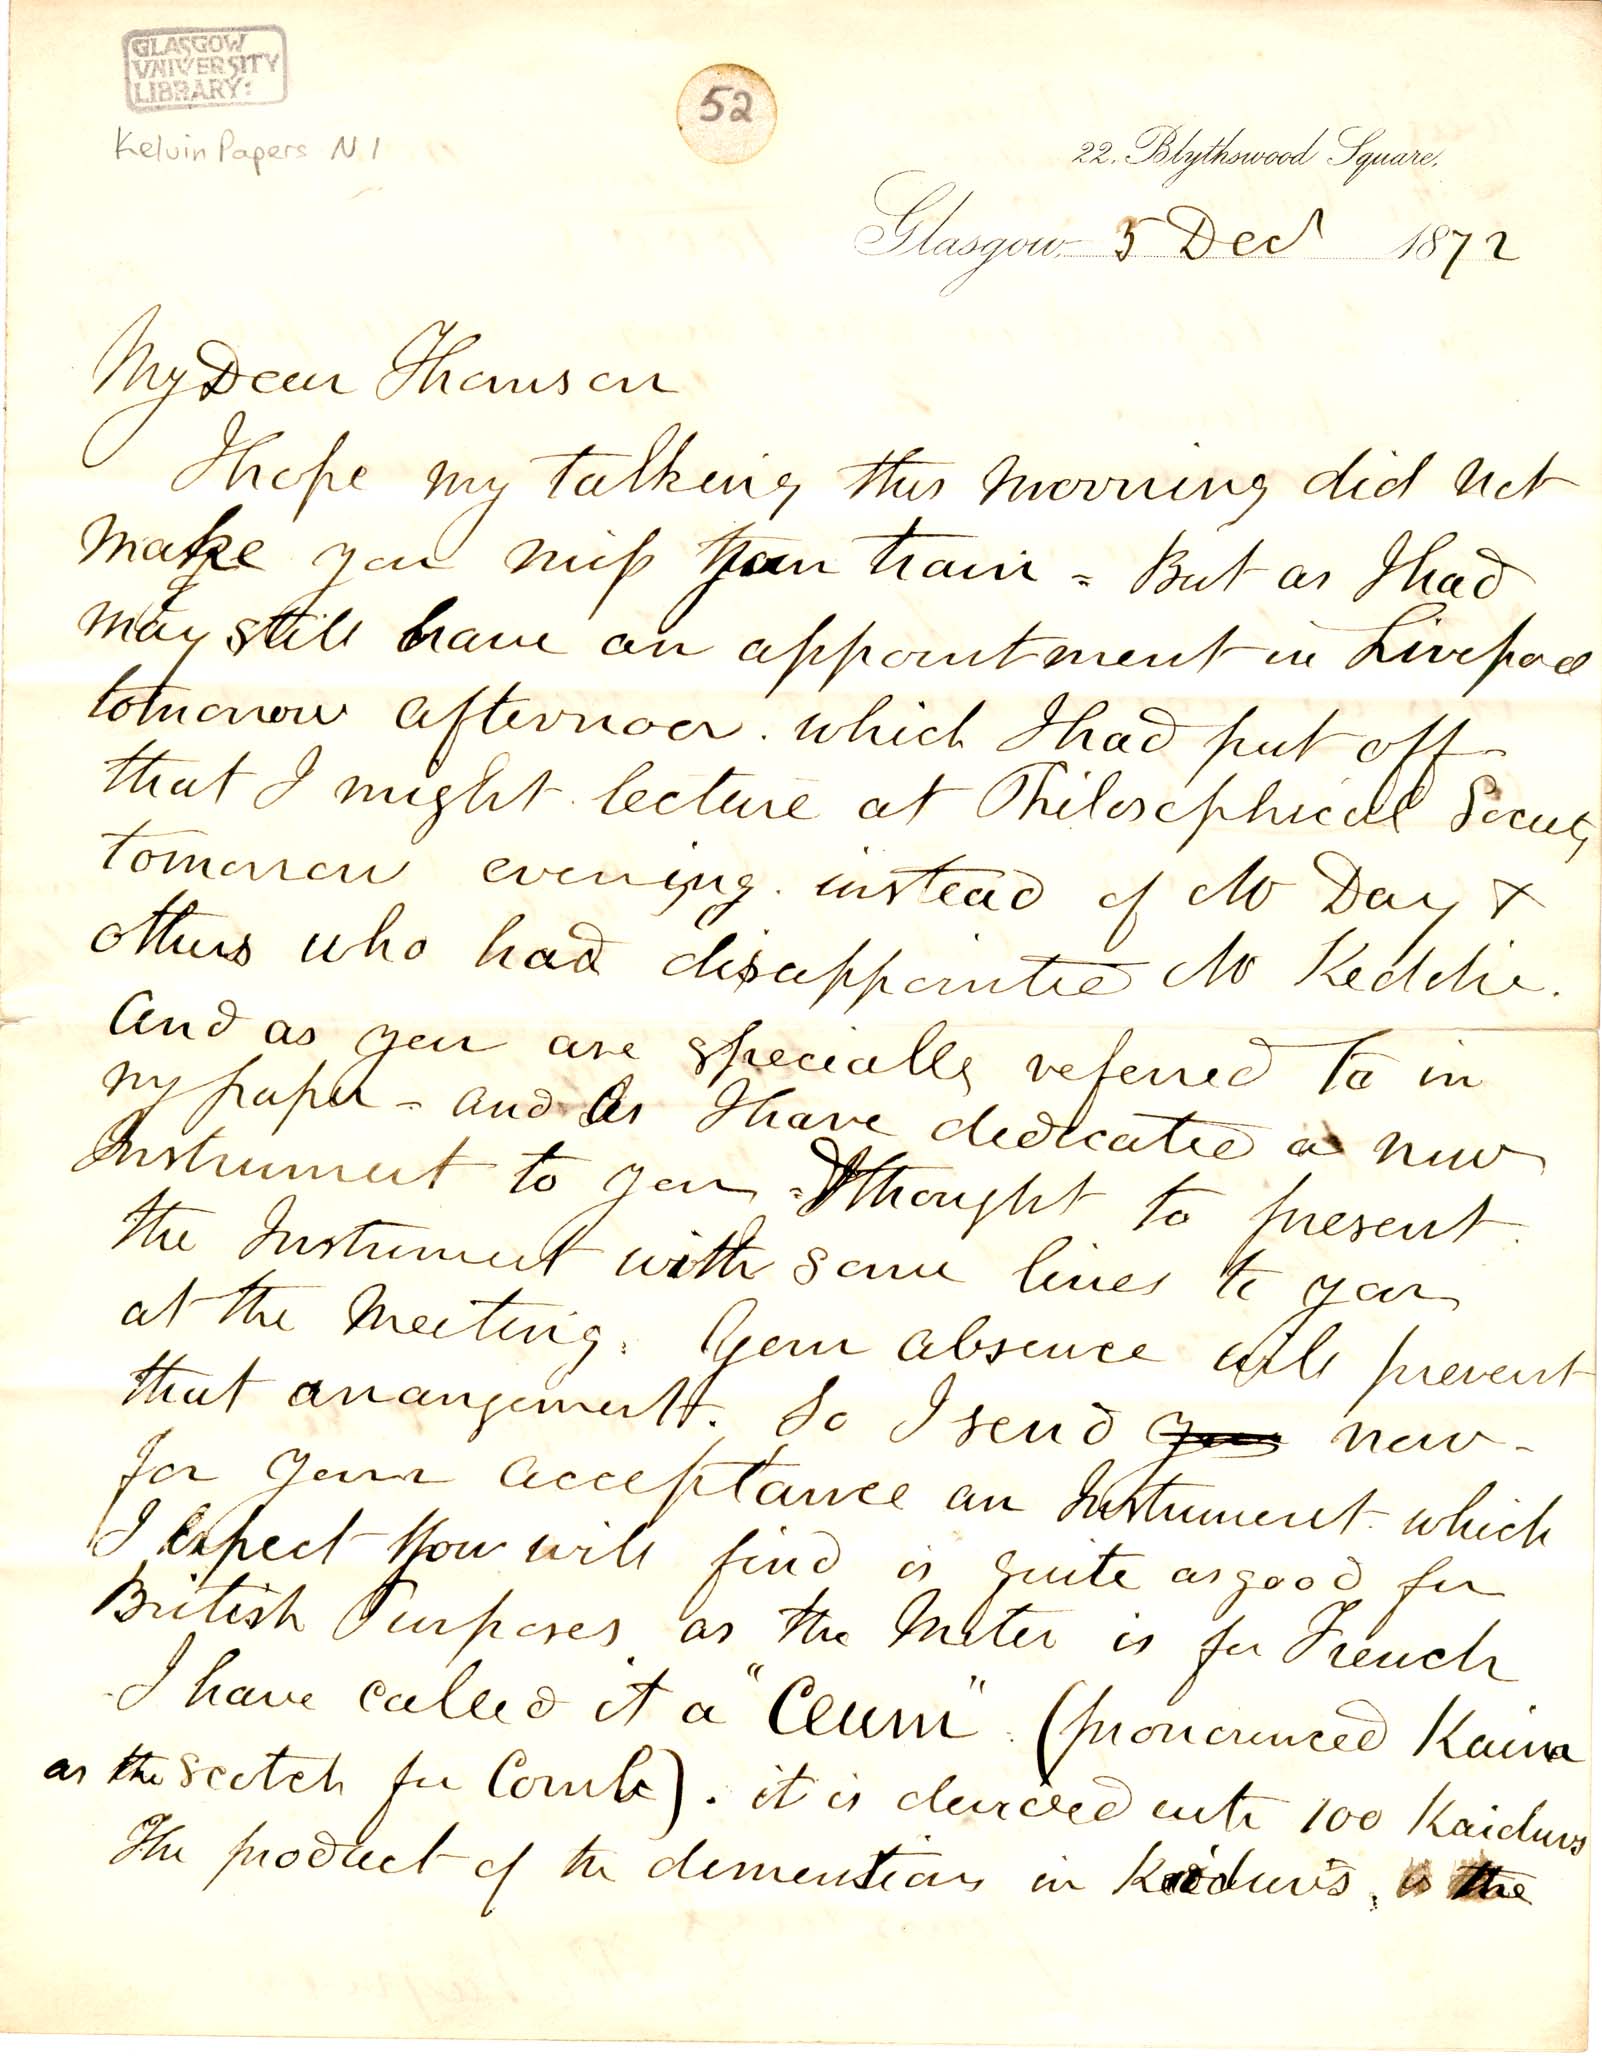 GLASGOW
UNIVERSITY
LIBRARY:
Kelvin Papers N1
52
22. Blythswood Square.
Glasgow 5 Dec 1872
My Dear Thomson
I hope my talking this morning did not
make you miss your train - But as I had
may still have an appointment in Liverpool
tomorrow afternoon. which I had put off
that I might lecture at Philosophical Society
tomorrow evening. instead of Mr Day &
others who had disappointed Mr Keddie.
And as you are specially referred to in
my paper - and as I have dedicated a new
Instrument to you - I thought to present
the Instrument with some lines to you
at the Meeting. Your absence will prevent
that arrangement. So I send you now -
for your acceptance an Instrument which
I expect you will find is quite as good for
British Purposes as the Meter is for French
I have called it a "Ceum" (pronounced Kaim
as the Scotch for Comb). it is divided into 100 Kaidurs
The product of the dimensions in Kaidurs, is the